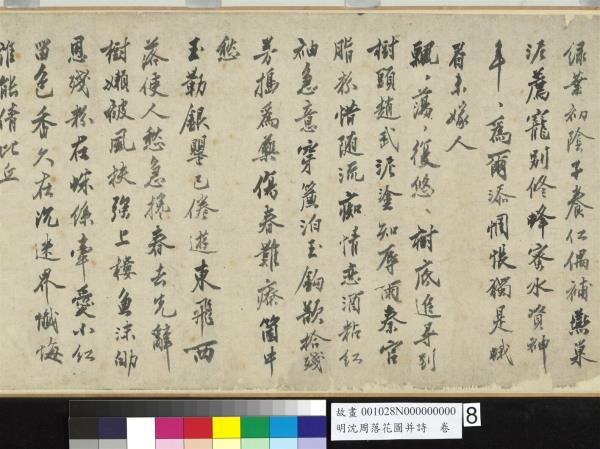 綠葉初陰子養仁偶補燕巢
泥薦寵別修蜂蜜水資神
年〻為爾添惆悵獨是蛾
眉未嫁人
飄〻蕩〻復悠〻樹底追尋到
樹頭趙武泥塗知辱雨秦宮
脂粉惜隨流痴情戀酒粘紅
袖急意穿簾泊玉鈎欲拾殘
芳搗為藥傷春難療箇中
愁
玉勒銀罌已倦遊東飛西
落使人愁急攙春去先辭
樹懶被風扶強上樓魚沫劬
恩殘粉在蛛絲牽愛小紅
留色香久在沉迷界懺悔
誰能倩比丘
故畫 001028N000000000
明沈周落花圖并詩 卷
8